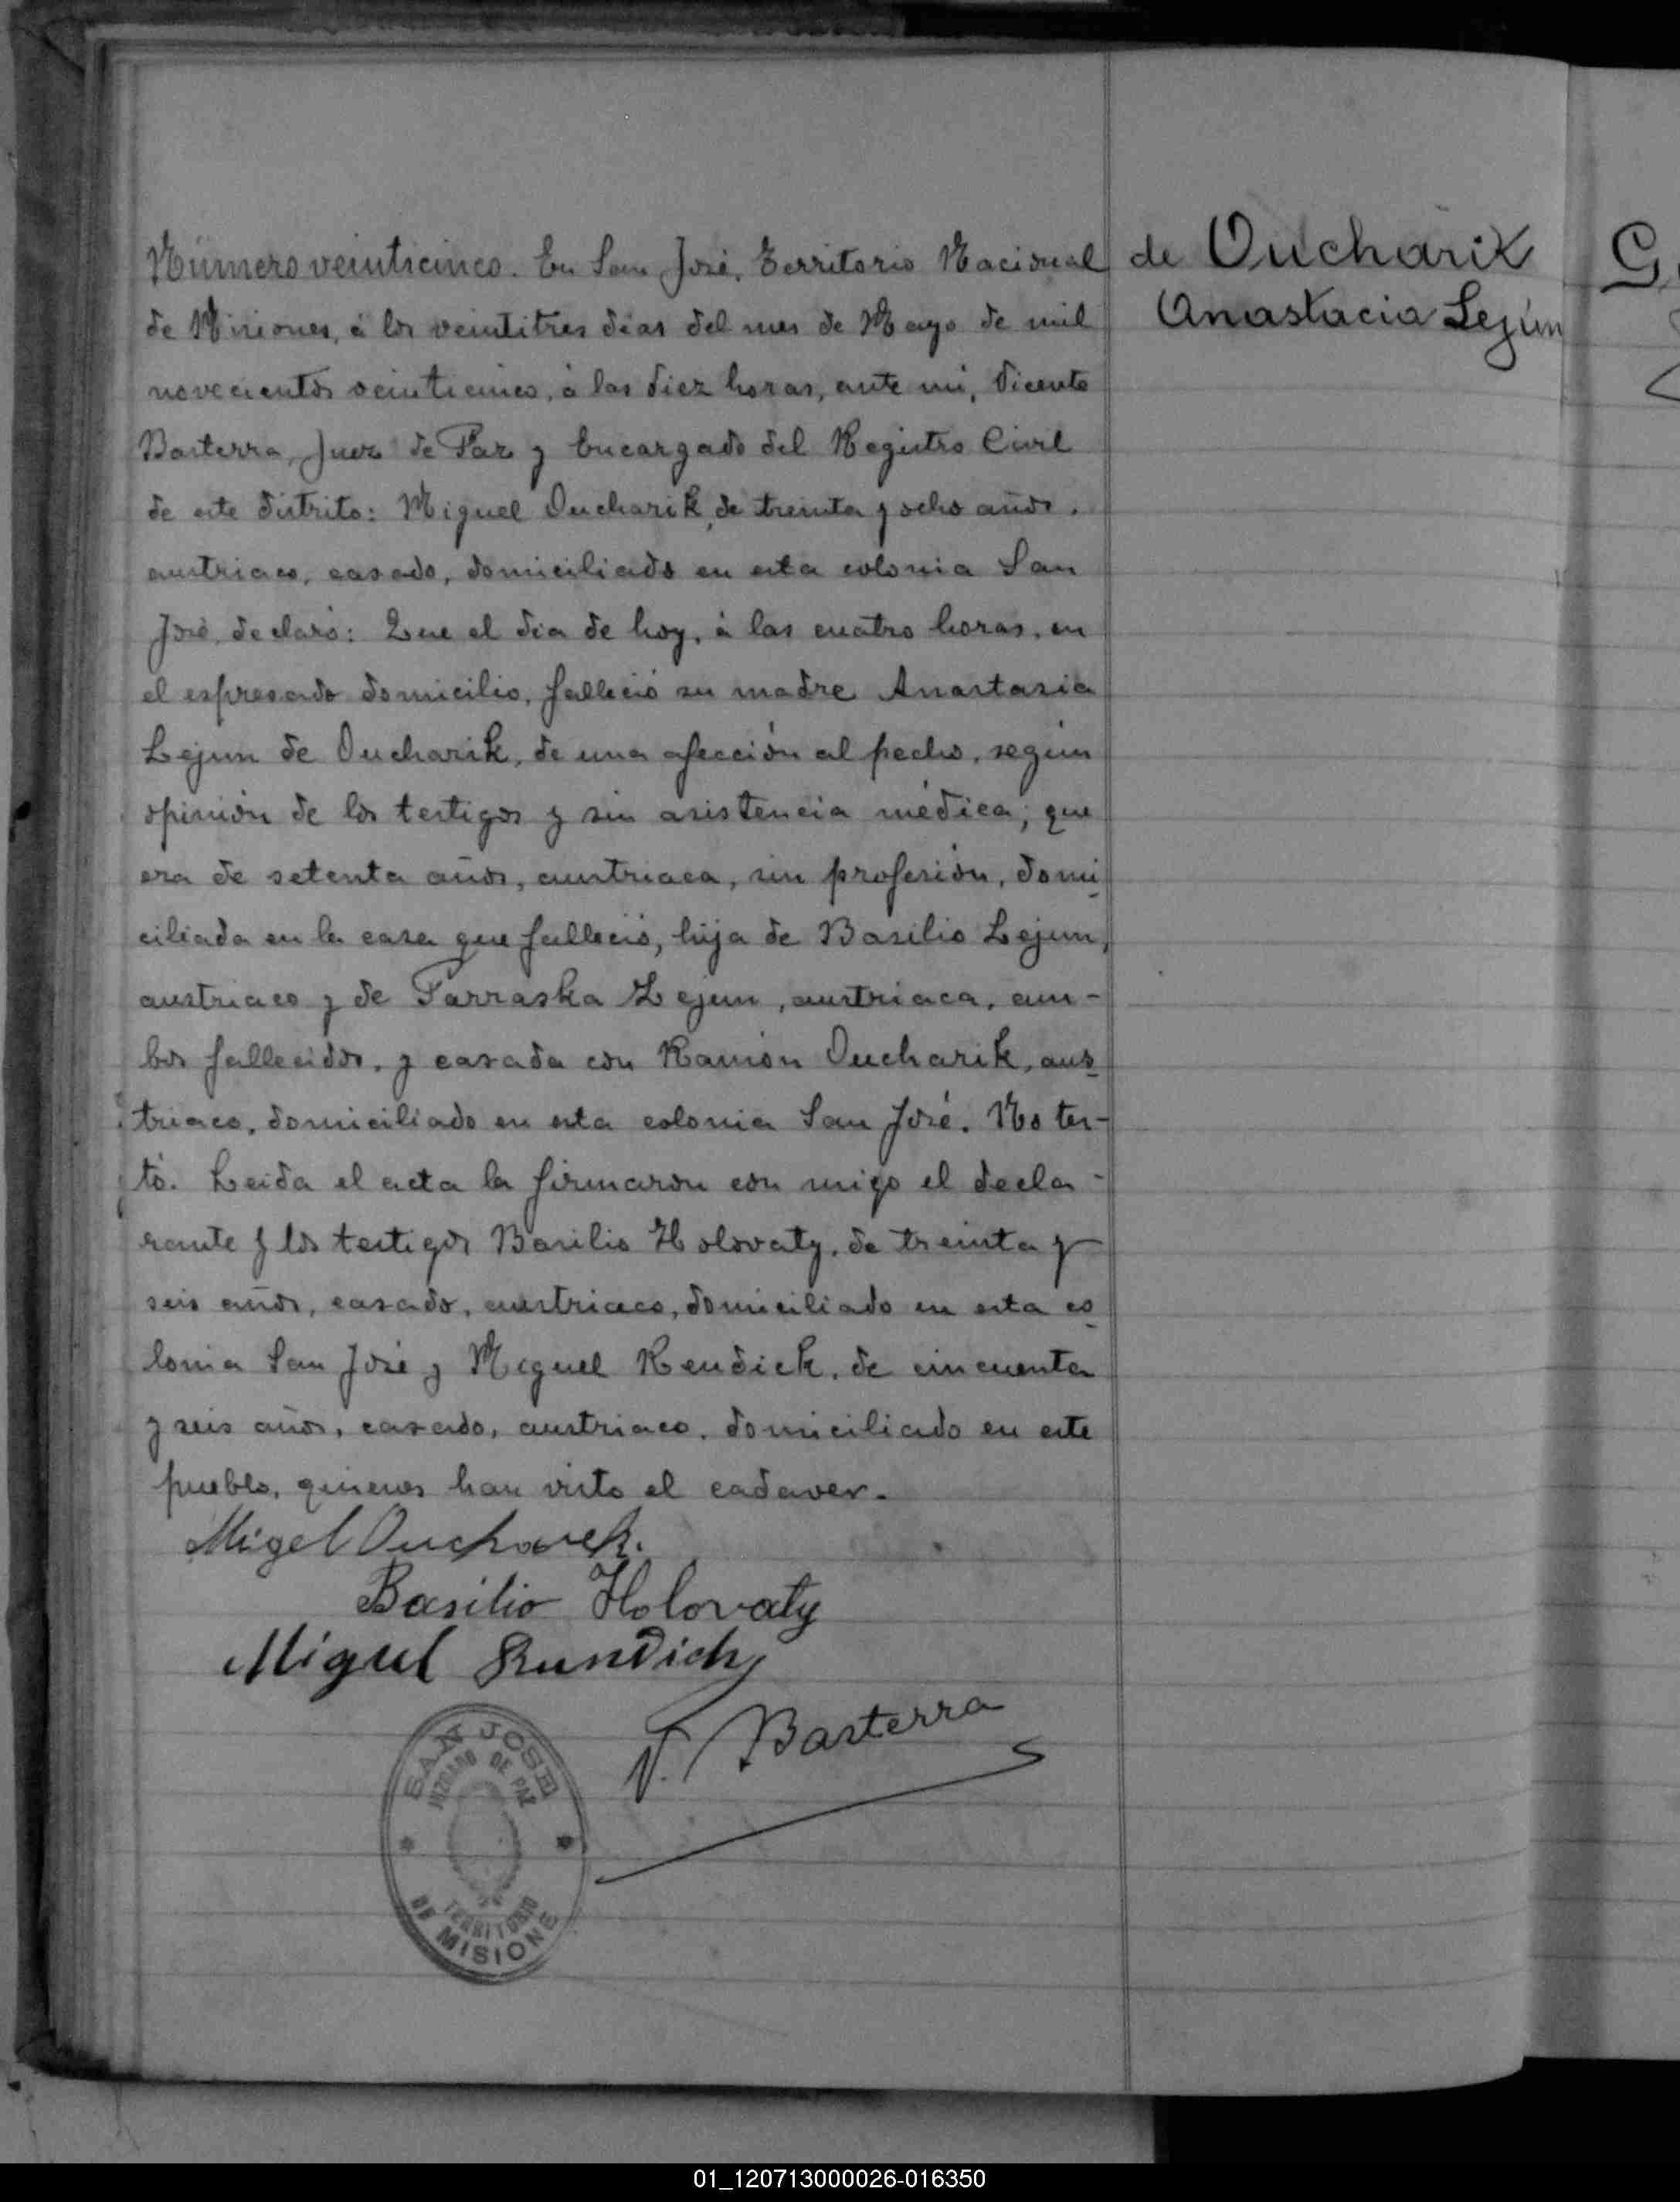 Número veinticinco. En San José, Territorio Nacional
de Misiones, á los veintitres dias del mes de Mayo de mil
novecientos veinticinco, á las diez horas, ante mi, Vicente
Basterra, Juez de Paz y Encargado del Registro Civil
de este distrito: Miguel Oucharik, de treinta y ocho años,
austriaco, casado, domiciliado en esta colonia San
José, declaró: Que el dia de hoy, á las cuatro horas, en
el espresado domicilio, falleció su madre Anastasia
Lejun de Oucharik, de una afección al pecho, según
opinión de los testigos y sin asistencia médica; que
era de setenta años, austriaca, sin profesión, domi-
ciliada en la casa que falleció, hija de Basilio Lejun,
austriaco y de Parraska Lejun, austriaca, am-
bos fallecidos, y casada con Ramón Oucharik, aus-
triaco, domiciliado en esta colonia San José. No tes-
tó. Leida el acta la firmaron con migo el decla-
rante y los testigos Basilio Holovaty, de treinta y
seis años, casado, austriaco, domiciliado en esta co-
lonia San José y Miguel Rendick, de cincuenta
y seis años, casado, austriaco, domiciliado en este
pueblo, quienes han visto el cadaver.
Migel Ouchavek.
Basilio Holovaty
Miguel Rundich
V. Basterra
SAN JOSE
JUZGADO DE PAZ
TERRITORIO
DE MISIONE
de Oucharik
Anastacia Lejún
G
01_120713000026-016350